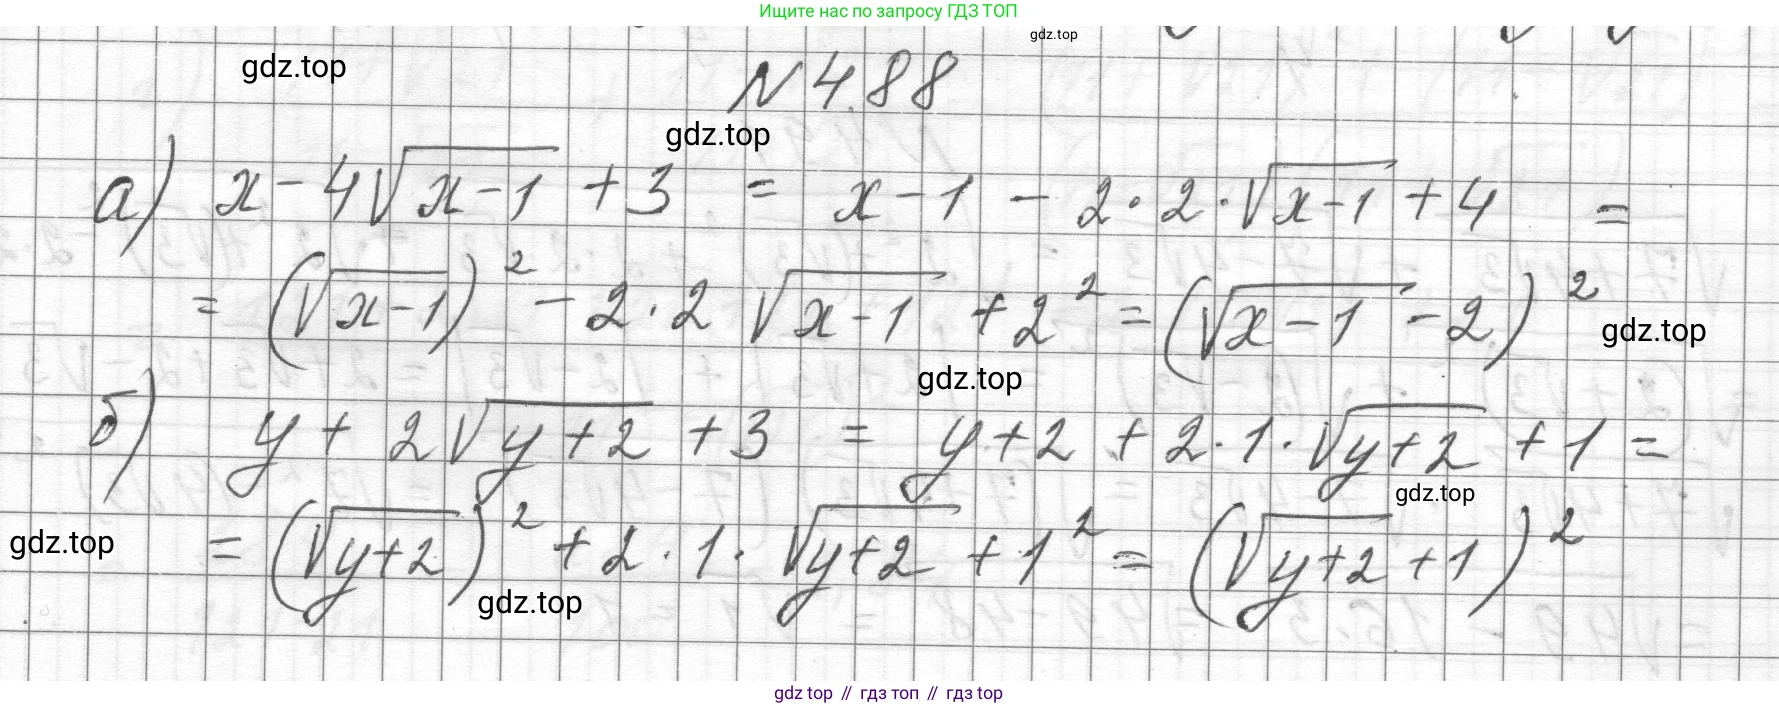 Ищите нас по запросу ГДЗ ТОП
gdz.top
gdz.top
N 488
gdz.top
а) x - 4√(x-1) + 3 = x - 1 - 2·2·√(x-1) + 4 =
= (√(x-1))² - 2·2√(x-1) + 2² = (√(x-1) - 2)²
gdz.top
gdz.top
б) y + 2√(y+2) + 3 = y + 2 + 2·1·√(y+2) + 1 =
gdz.top
= (√(y+2))² + 2·1·√(y+2) + 1² = (√(y+2) + 1)²
gdz.top
gdz.top
gdz top // гдз топ // гдз top